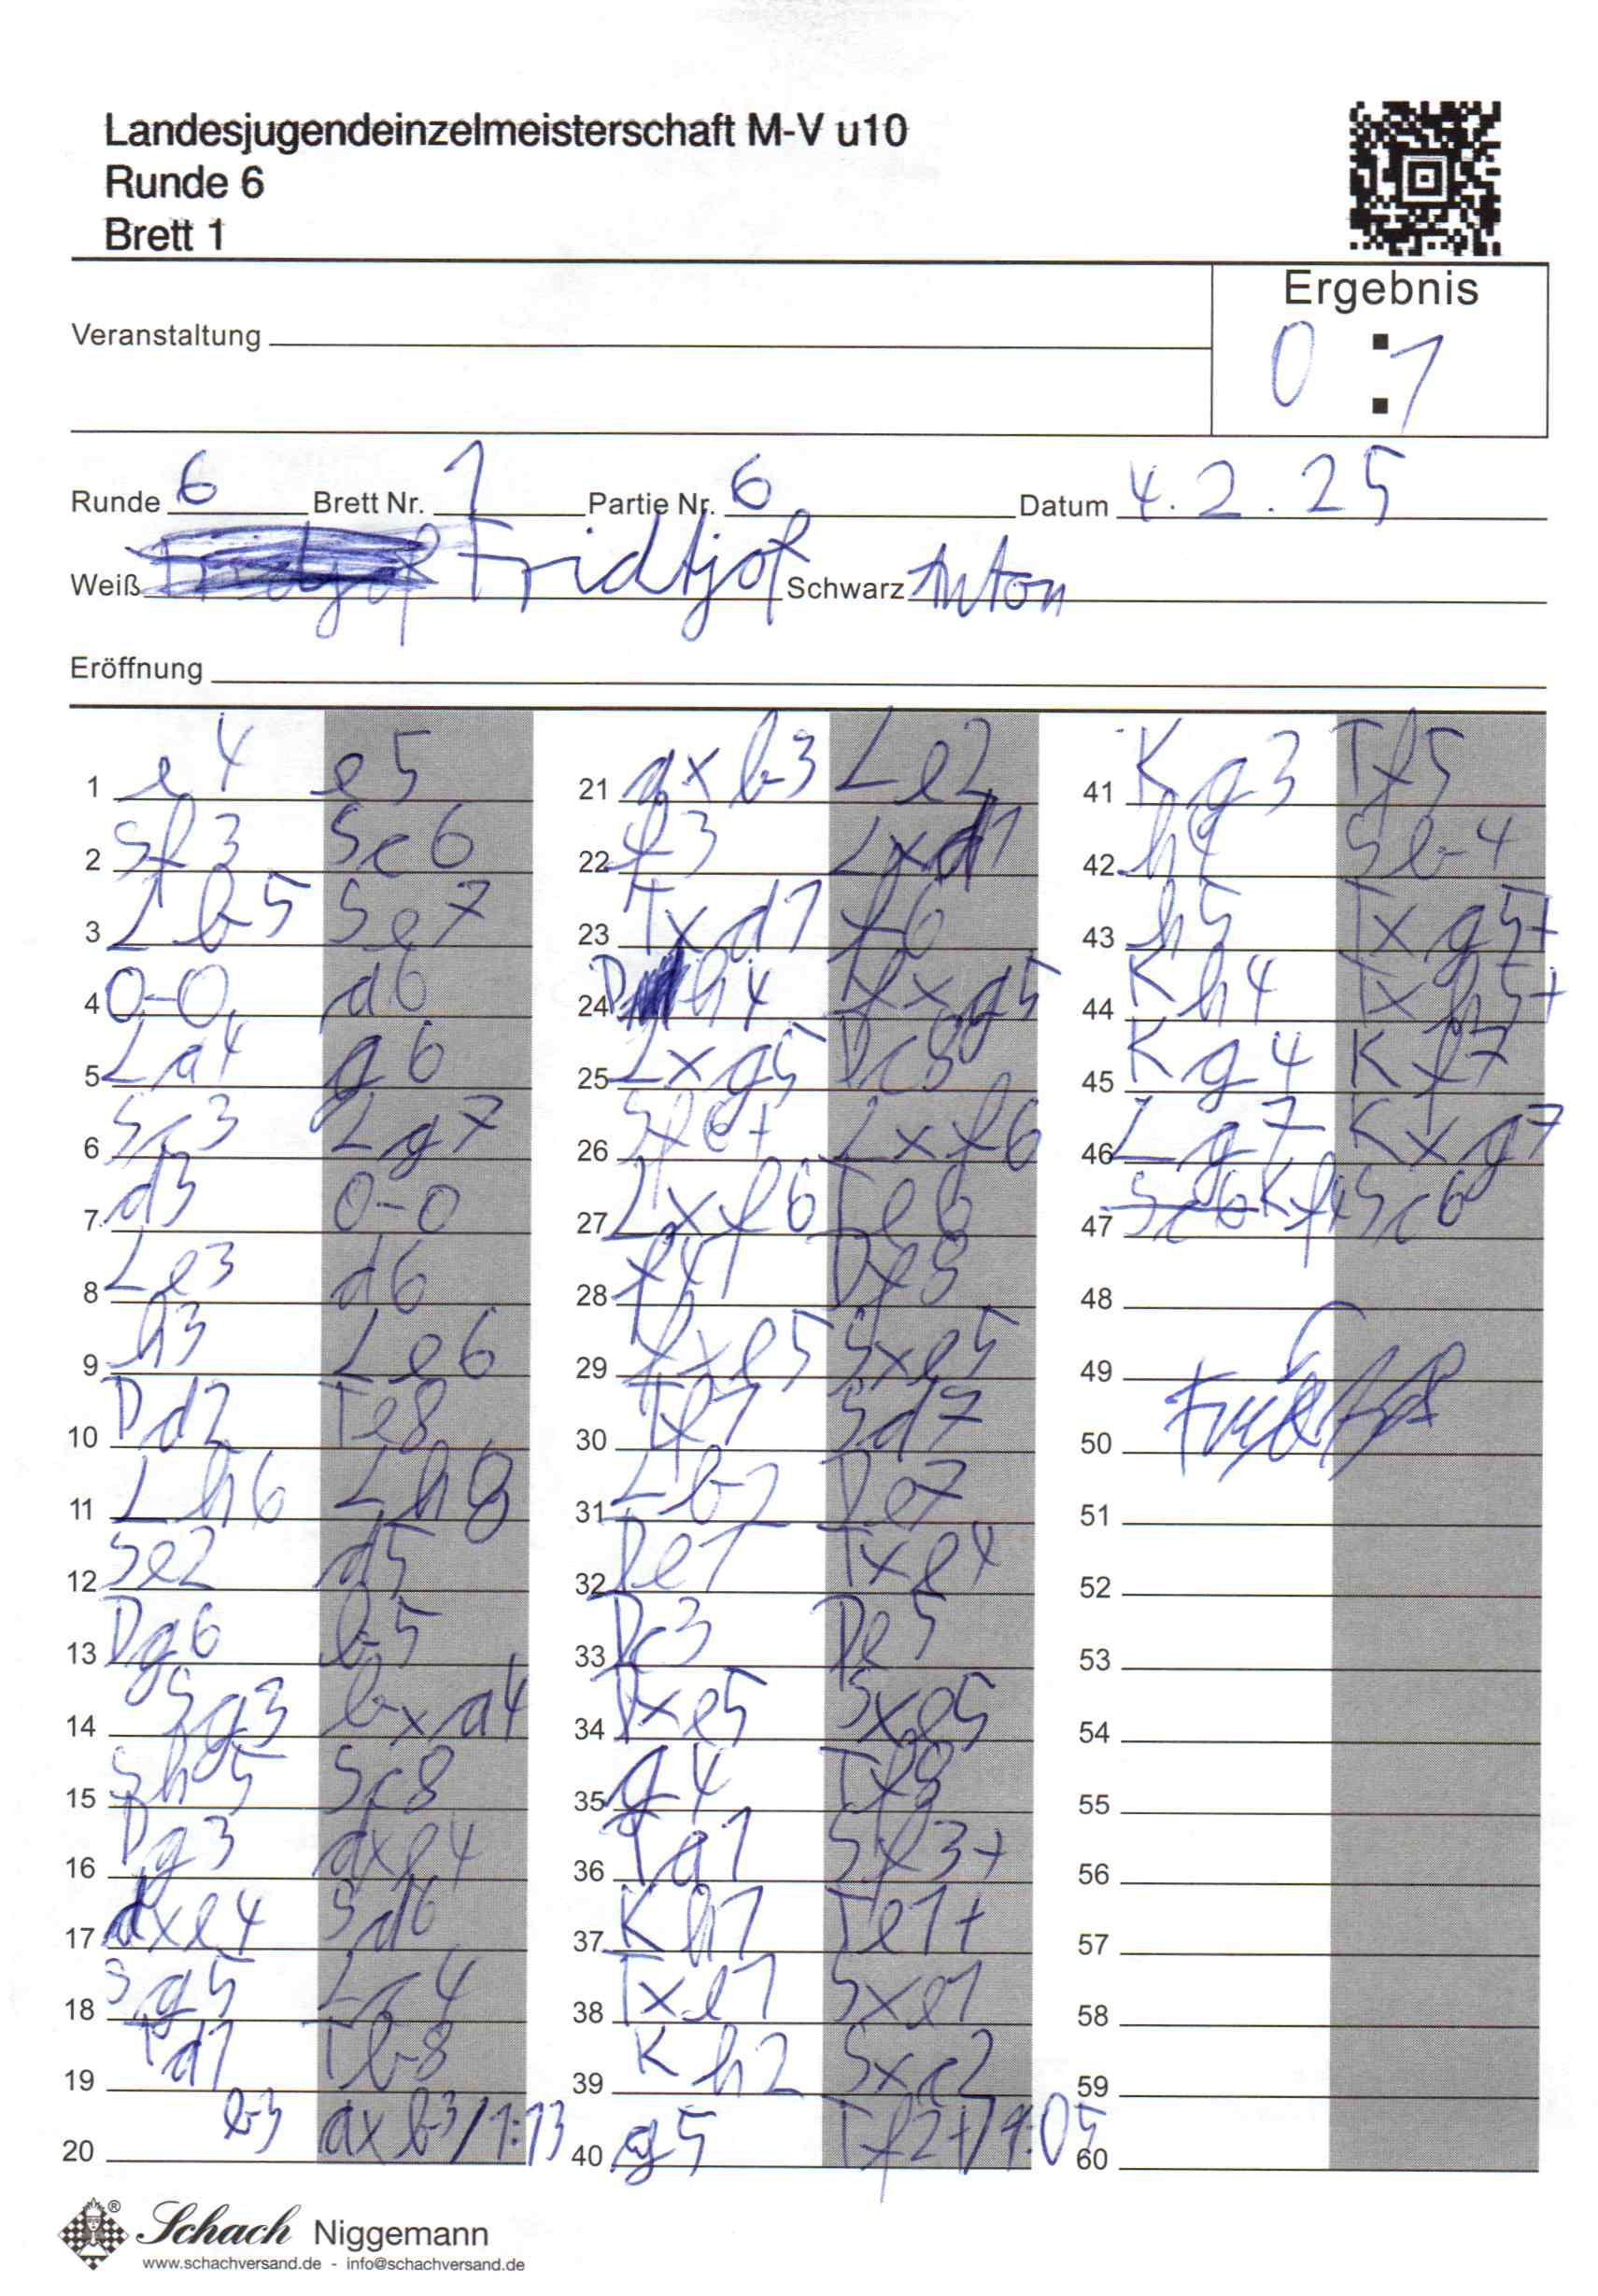 Landesjugendeinzelmeisterschaft M-V u10
Runde 6
Brett 1
Ergebnis
0 : 1
Veranstaltung
Runde 6 Brett Nr. 1 Partie Nr. 6 Datum 4.2.25
Weiß Fridtjof Schwarz Anton
Eröffnung
1 e4 e5
2 Sf3 Sc6
3 Lb5 Sge7
4 0-0 d6
5 La4 g6
6 Sc3 Lg7
7 d3 0-0
8 Le3 d6
9 h3 Le6
10 Dd2 Te8
11 Lh6 Lh8
12 Se2 d5
13 Dg6 b5
14 Sg3 bxa4
15 Sh5 Sc8
16 Dg3 dxe4
17 dxe4 Sd6
18 Sg5 Lc4
19 Td1 Tb8
20 b3 axb3/1:13
21 axb3 Le2
22 f3 Lxd1
23 Txd1 f6
24 Dh4 fxg5
25 Lxg5 Dc8
26 Sf6+ Lxf6
27 Lxf6 Te6
28 f4 Df8
29 fxe5 Sxe5
30 Tf1 Sd7
31 Lb2 De7
32 De1 Txe4
33 Dc3 De5
34 Dxe5 Sxe5
35 g4 Tf8
36 Ta1 Sf3+
37 Kh1 Te1+
38 Txe1 Sxe1
39 Kh2 Sxc2
40 g5 Tf2+/1:05
41 Kg3 Tf5
42 h4 Sb4
43 h5 Txg5+
44 Kh4 Txh5+
45 Kg4 Kf7
46 Lg7 Kxg7
47 Kf4 Sc6
48
49
50
51
52
53
54
55
56
57
58
59
60
Schach Niggemann
www.schachversand.de - info@schachversand.de